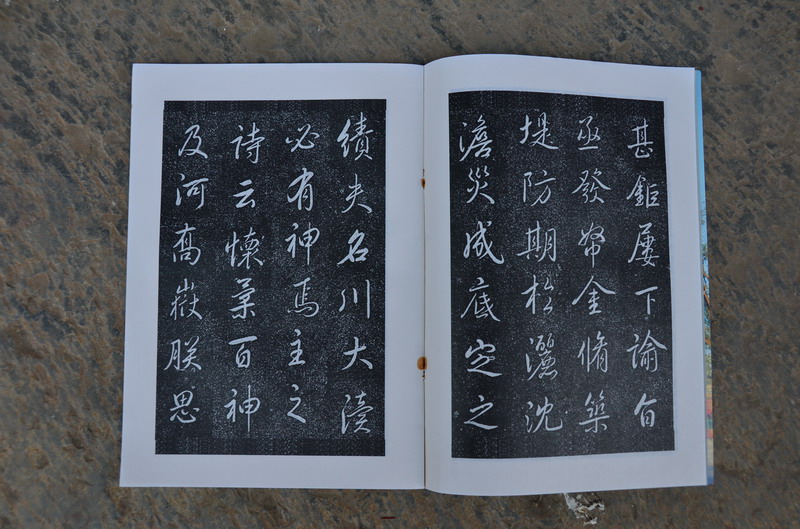 甚鉅屢下諭旨
亟發帑金脩築
堤防期於灑沈
澹災成底定之
績夫名川大瀆
必有神焉主之
詩云懷柔百神
及河喬嶽朕思